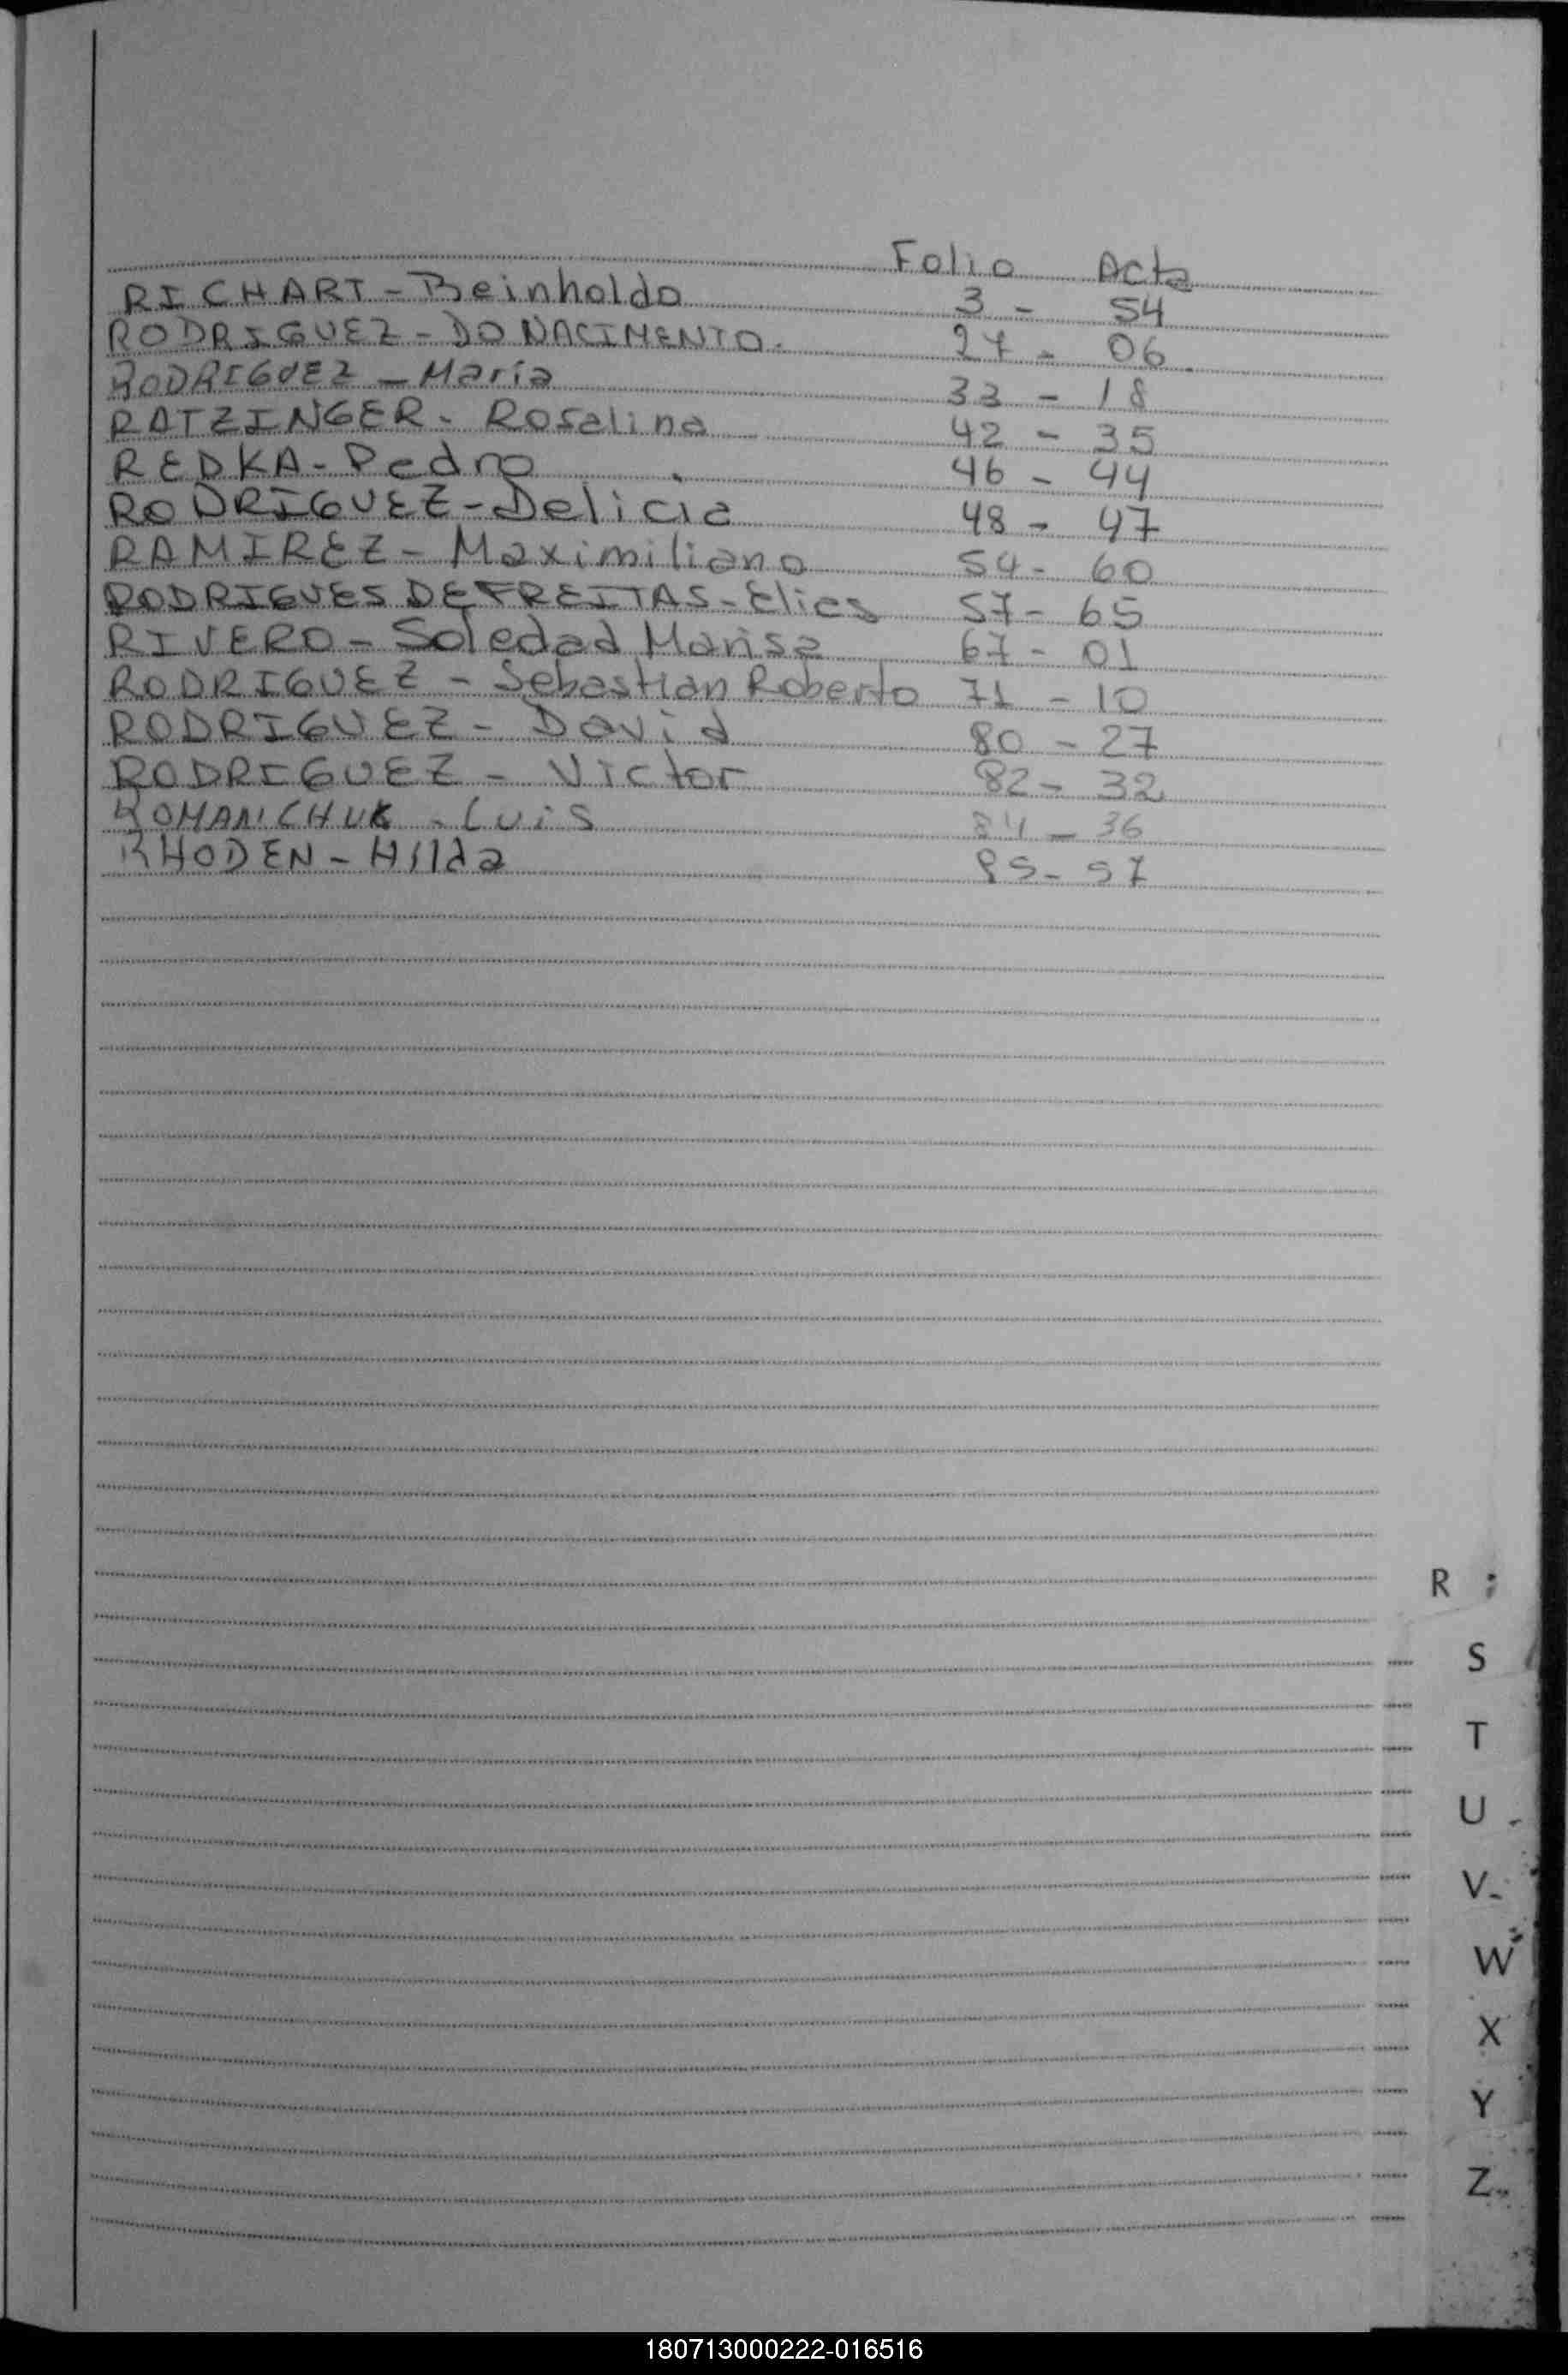 Folio Acta
RICHART - Beinholdo 3 - 54
RODRIGUEZ - DO NACIMENTO. 27 - 06
RODRIGUEZ - Maria 33 - 18
RATZINGER - Rosalina 42 - 35
REDKA - Pedro 46 - 44
RODRIGUEZ - Delicia 48 - 47
RAMIREZ - Maximiliano 54 - 60
RODRIGUES DE FREITAS - Elias 57 - 65
RIVERO - Soledad Marisa 67 - 01
RODRIGUEZ - Sebastian Roberto 71 - 10
RODRIGUEZ - David 80 - 27
RODRIGUEZ - Victor 82 - 32
ROMANCHUK - Luis 84 - 36
RHODEN - Hilda 85 - 57
R
S
T
U
V
W
X
Y
Z
180713000222-016516